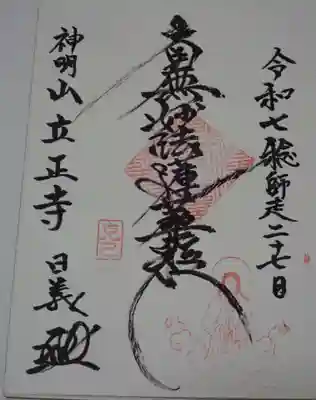 令和七稔師走二十七日
南無妙法蓮華経
神明山立正寺 日義